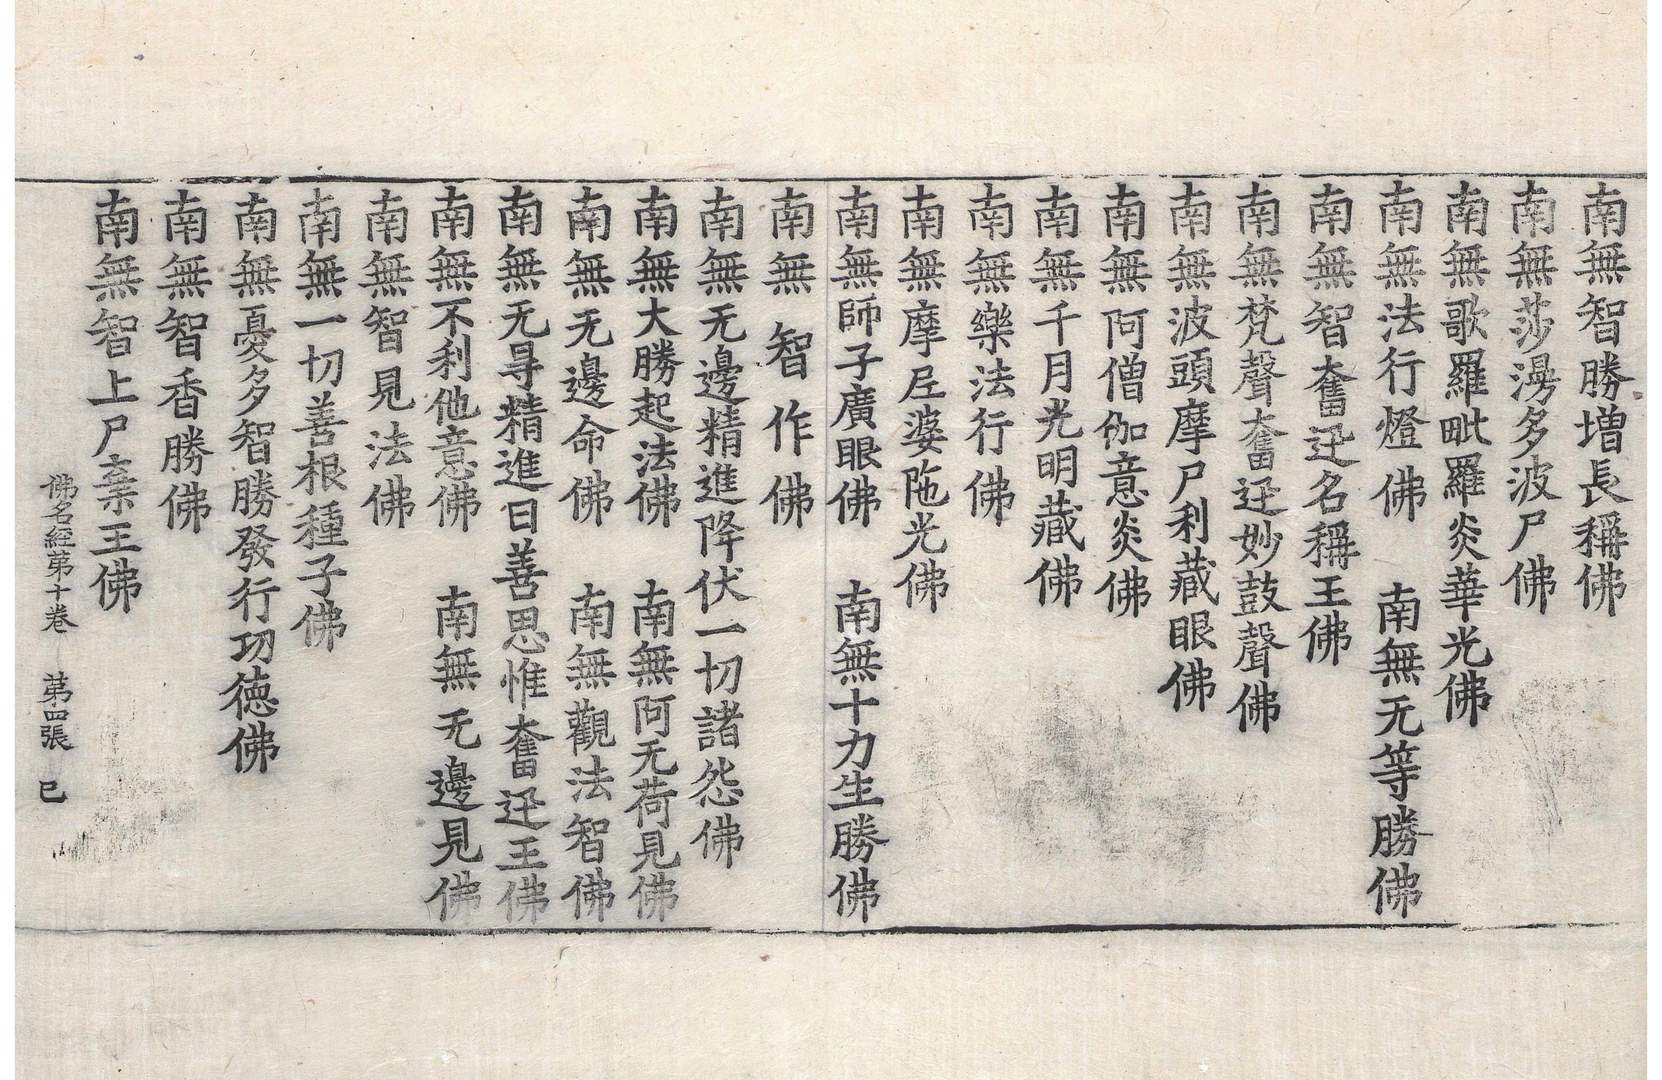 南無智勝增長稱佛
南無莎漫多波尸佛
南無歌羅毗羅炎華光佛
南無法行燈佛 南無无等勝佛
南無智奮迅名稱王佛
南無梵聲奮迅妙鼓聲佛
南無波頭摩尸利藏眼佛
南無阿僧伽意炎佛
南無千月光明藏佛
南無樂法行佛
南無摩尼婆陁光佛
南無師子廣眼佛 南無十力生勝佛
南無智作佛
南無无邊精進降伏一切諸怨佛
南無大勝起法佛 南無阿无荷見佛
南無无邊命佛 南無觀法智佛
南無无㝵精進日善思惟奮迅王佛
南無不利他意佛 南無无邊見佛
南無智見法佛
南無一切善根種子佛
南無憂多智勝發行功德佛
南無智香勝佛
南無智上尸棄王佛
佛名經苐十卷 苐四張 已